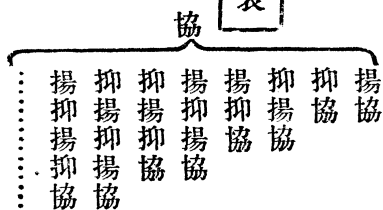 協
揚協
抑協
抑揚協
揚抑協
揚抑揚協
抑揚抑協
抑揚抑揚協
揚抑揚抑協
…………